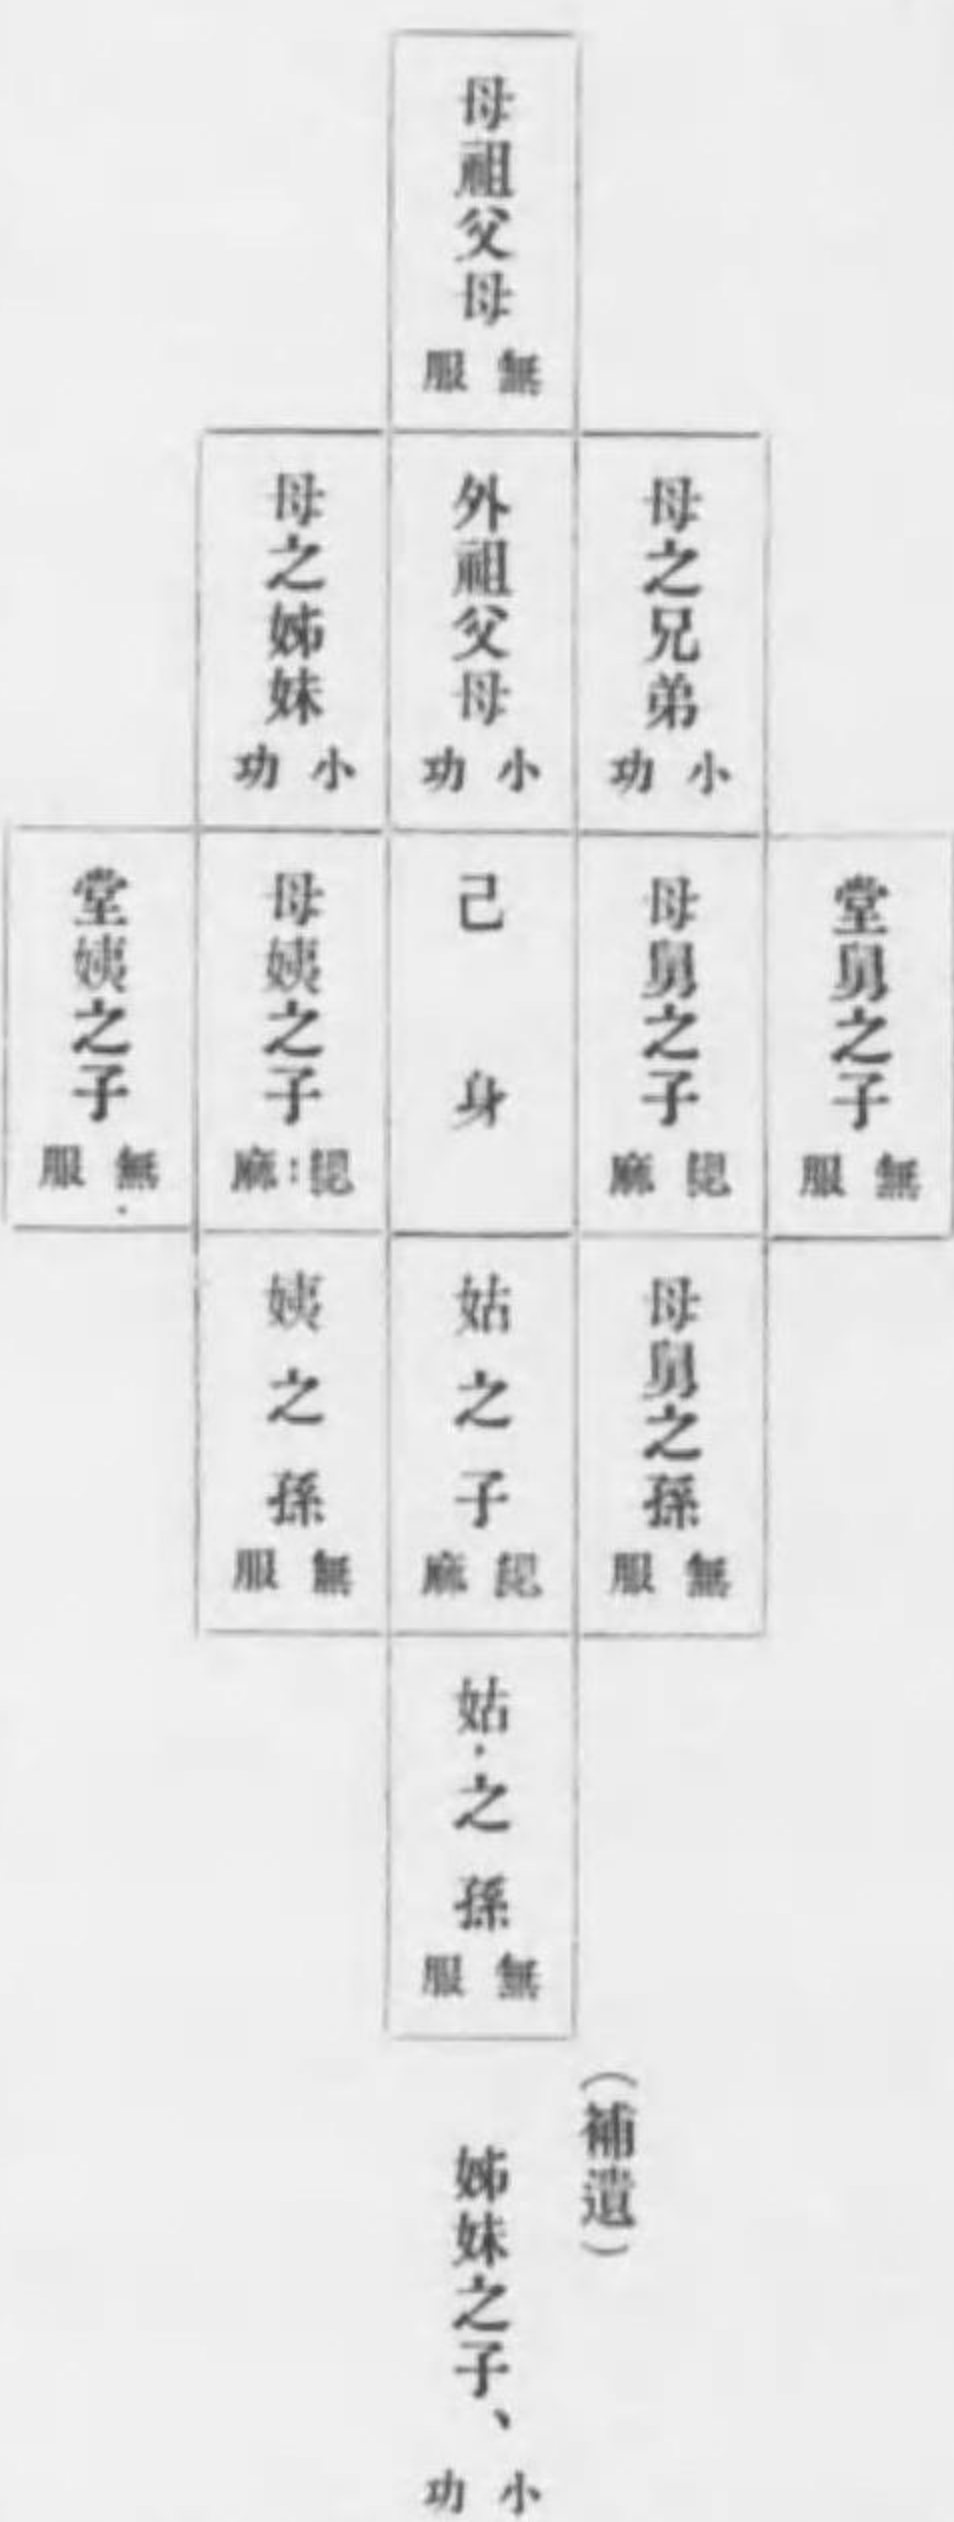 母祖父母
無服
母之兄弟
小功
外祖父母
小功
母之姊妹
小功
堂舅之子
無服
母舅之子
緦麻
己身
母姨之子
緦麻
堂姨之子
無服
母舅之孫
無服
姑之子
緦麻
姨之孫
無服
姑之孫
無服
（補遺）
姊妹之子、
小功